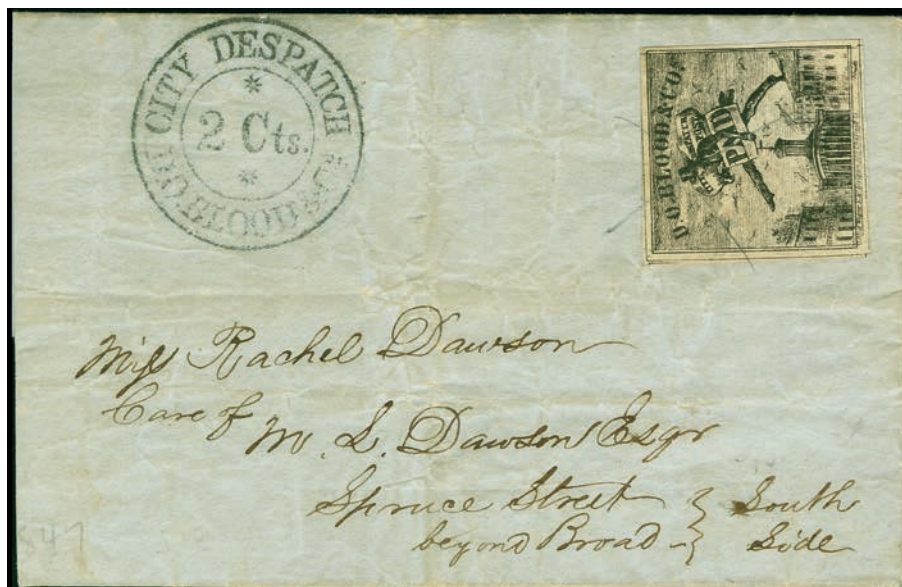 CITY DESPATCH
2 Cts.
D.O. BLOOD & Co.
D.O. BLOOD & CO.
PAID
Miss Rachel Dawson
Care of
M. L. Dawson Esqr
Spruce Street
beyond Broad
South
Side
847